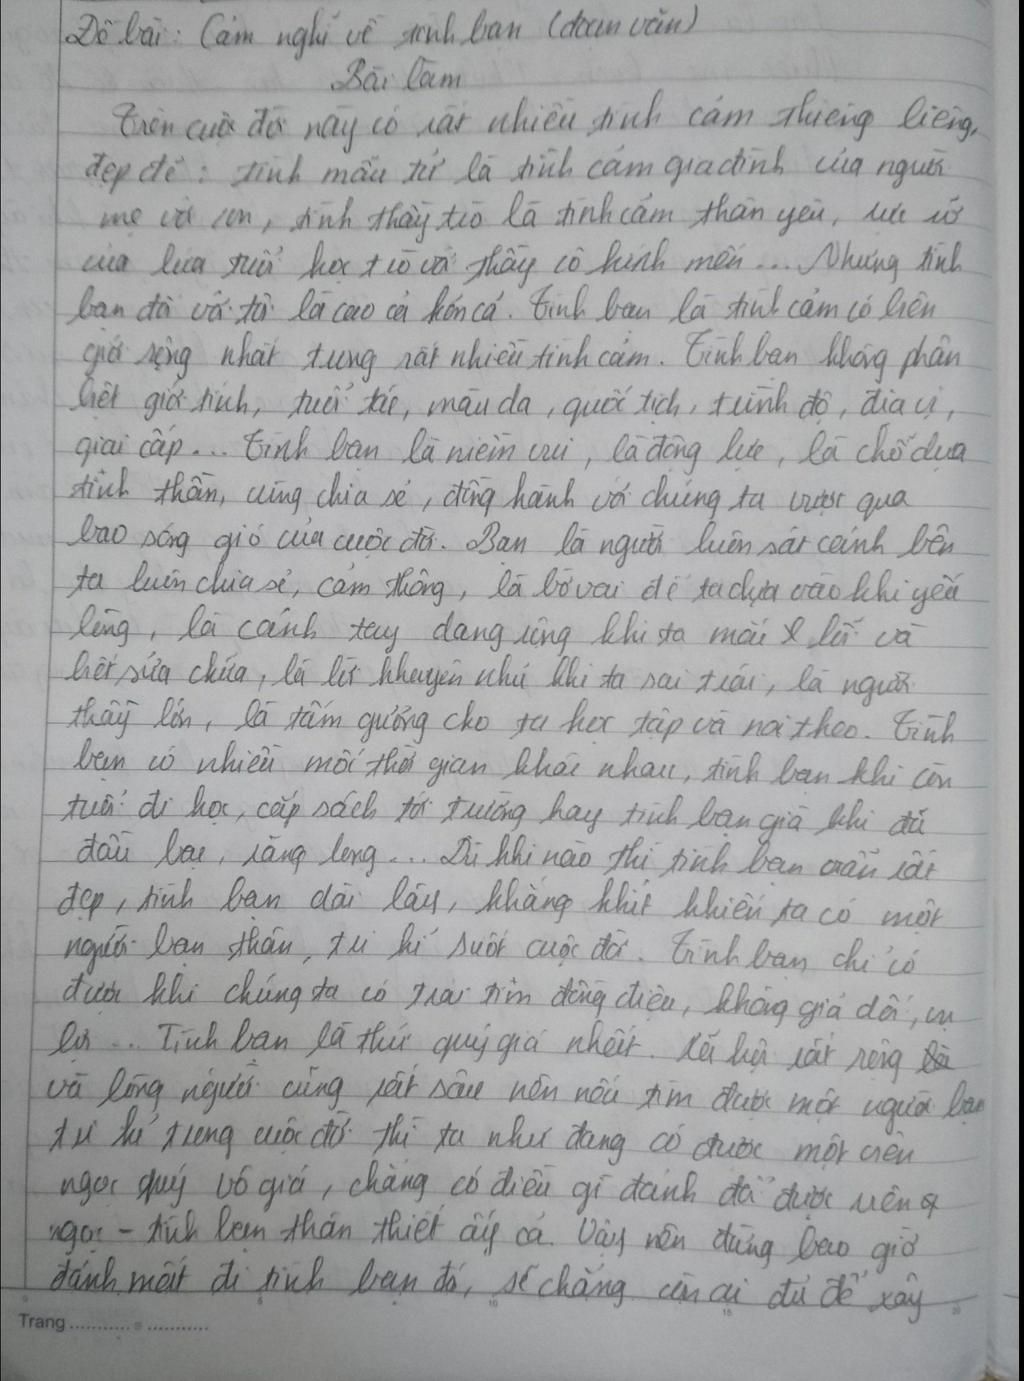 Đề bài: Cảm nghĩ về tình bạn (đoạn văn)
Bài làm
Trên cuộc đời này có rất nhiều tình cảm thiêng liêng,
đẹp đẽ: tình mẫu tử là tình cảm gia đình của người
mẹ và con, tình thầy trò là tình cảm thân yêu,
của lứa tuổi học trò với thầy cô kính mến... Nhưng tình
bạn đối với tôi là cao cả hơn cả. Tình bạn là tình cảm có biên
giới rộng nhất trong rất nhiều tình cảm. Tình bạn không phân
biệt giới tính, tuổi tác, màu da, quốc tịch, trình độ, địa vị,
giai cấp... Tình bạn là niềm vui, là động lực, là chỗ dựa
tinh thần, cùng chia sẻ, đồng hành với chúng ta vượt qua
bao sóng gió của cuộc đời. Bạn là người luôn sát cánh bên
ta luôn chia sẻ, cảm thông, là bờ vai để ta dựa vào khi yếu
lòng, là cánh tay dang rộng khi ta mắc lỗi và
biết sửa chữa, là lời khuyên nhủ khi ta sai trái, là người
thầy lớn, là tấm gương cho ta học tập và noi theo. Tình
bạn có nhiều mốc thời gian khác nhau, tình bạn khi còn
tuổi đi học, cắp sách tới trường hay tình bạn già khi đã
đầu bạc, răng long... Dù khi nào thì tình bạn vẫn rất
đẹp, tình bạn dài lâu, khăng khít khiến ta có một
người bạn thân, tri kỉ suốt cuộc đời. Tình bạn chỉ có
được khi chúng ta có trái tim đồng điệu, không giả dối, vụ
lợi... Tình bạn là thứ quý giá nhất. Xã hội rất rộng
và lòng người cũng rất sâu nên nếu tìm được một người bạn
tri kỉ trong cuộc đời thì ta như đang có được một viên
ngọc quý vô giá, chẳng có điều gì đánh đổi được viên
ngọc - tình bạn thân thiết ấy cả. Vậy nên đừng bao giờ
đánh mất đi tình bạn đó, sẽ chẳng còn ai đủ để xây
Trang